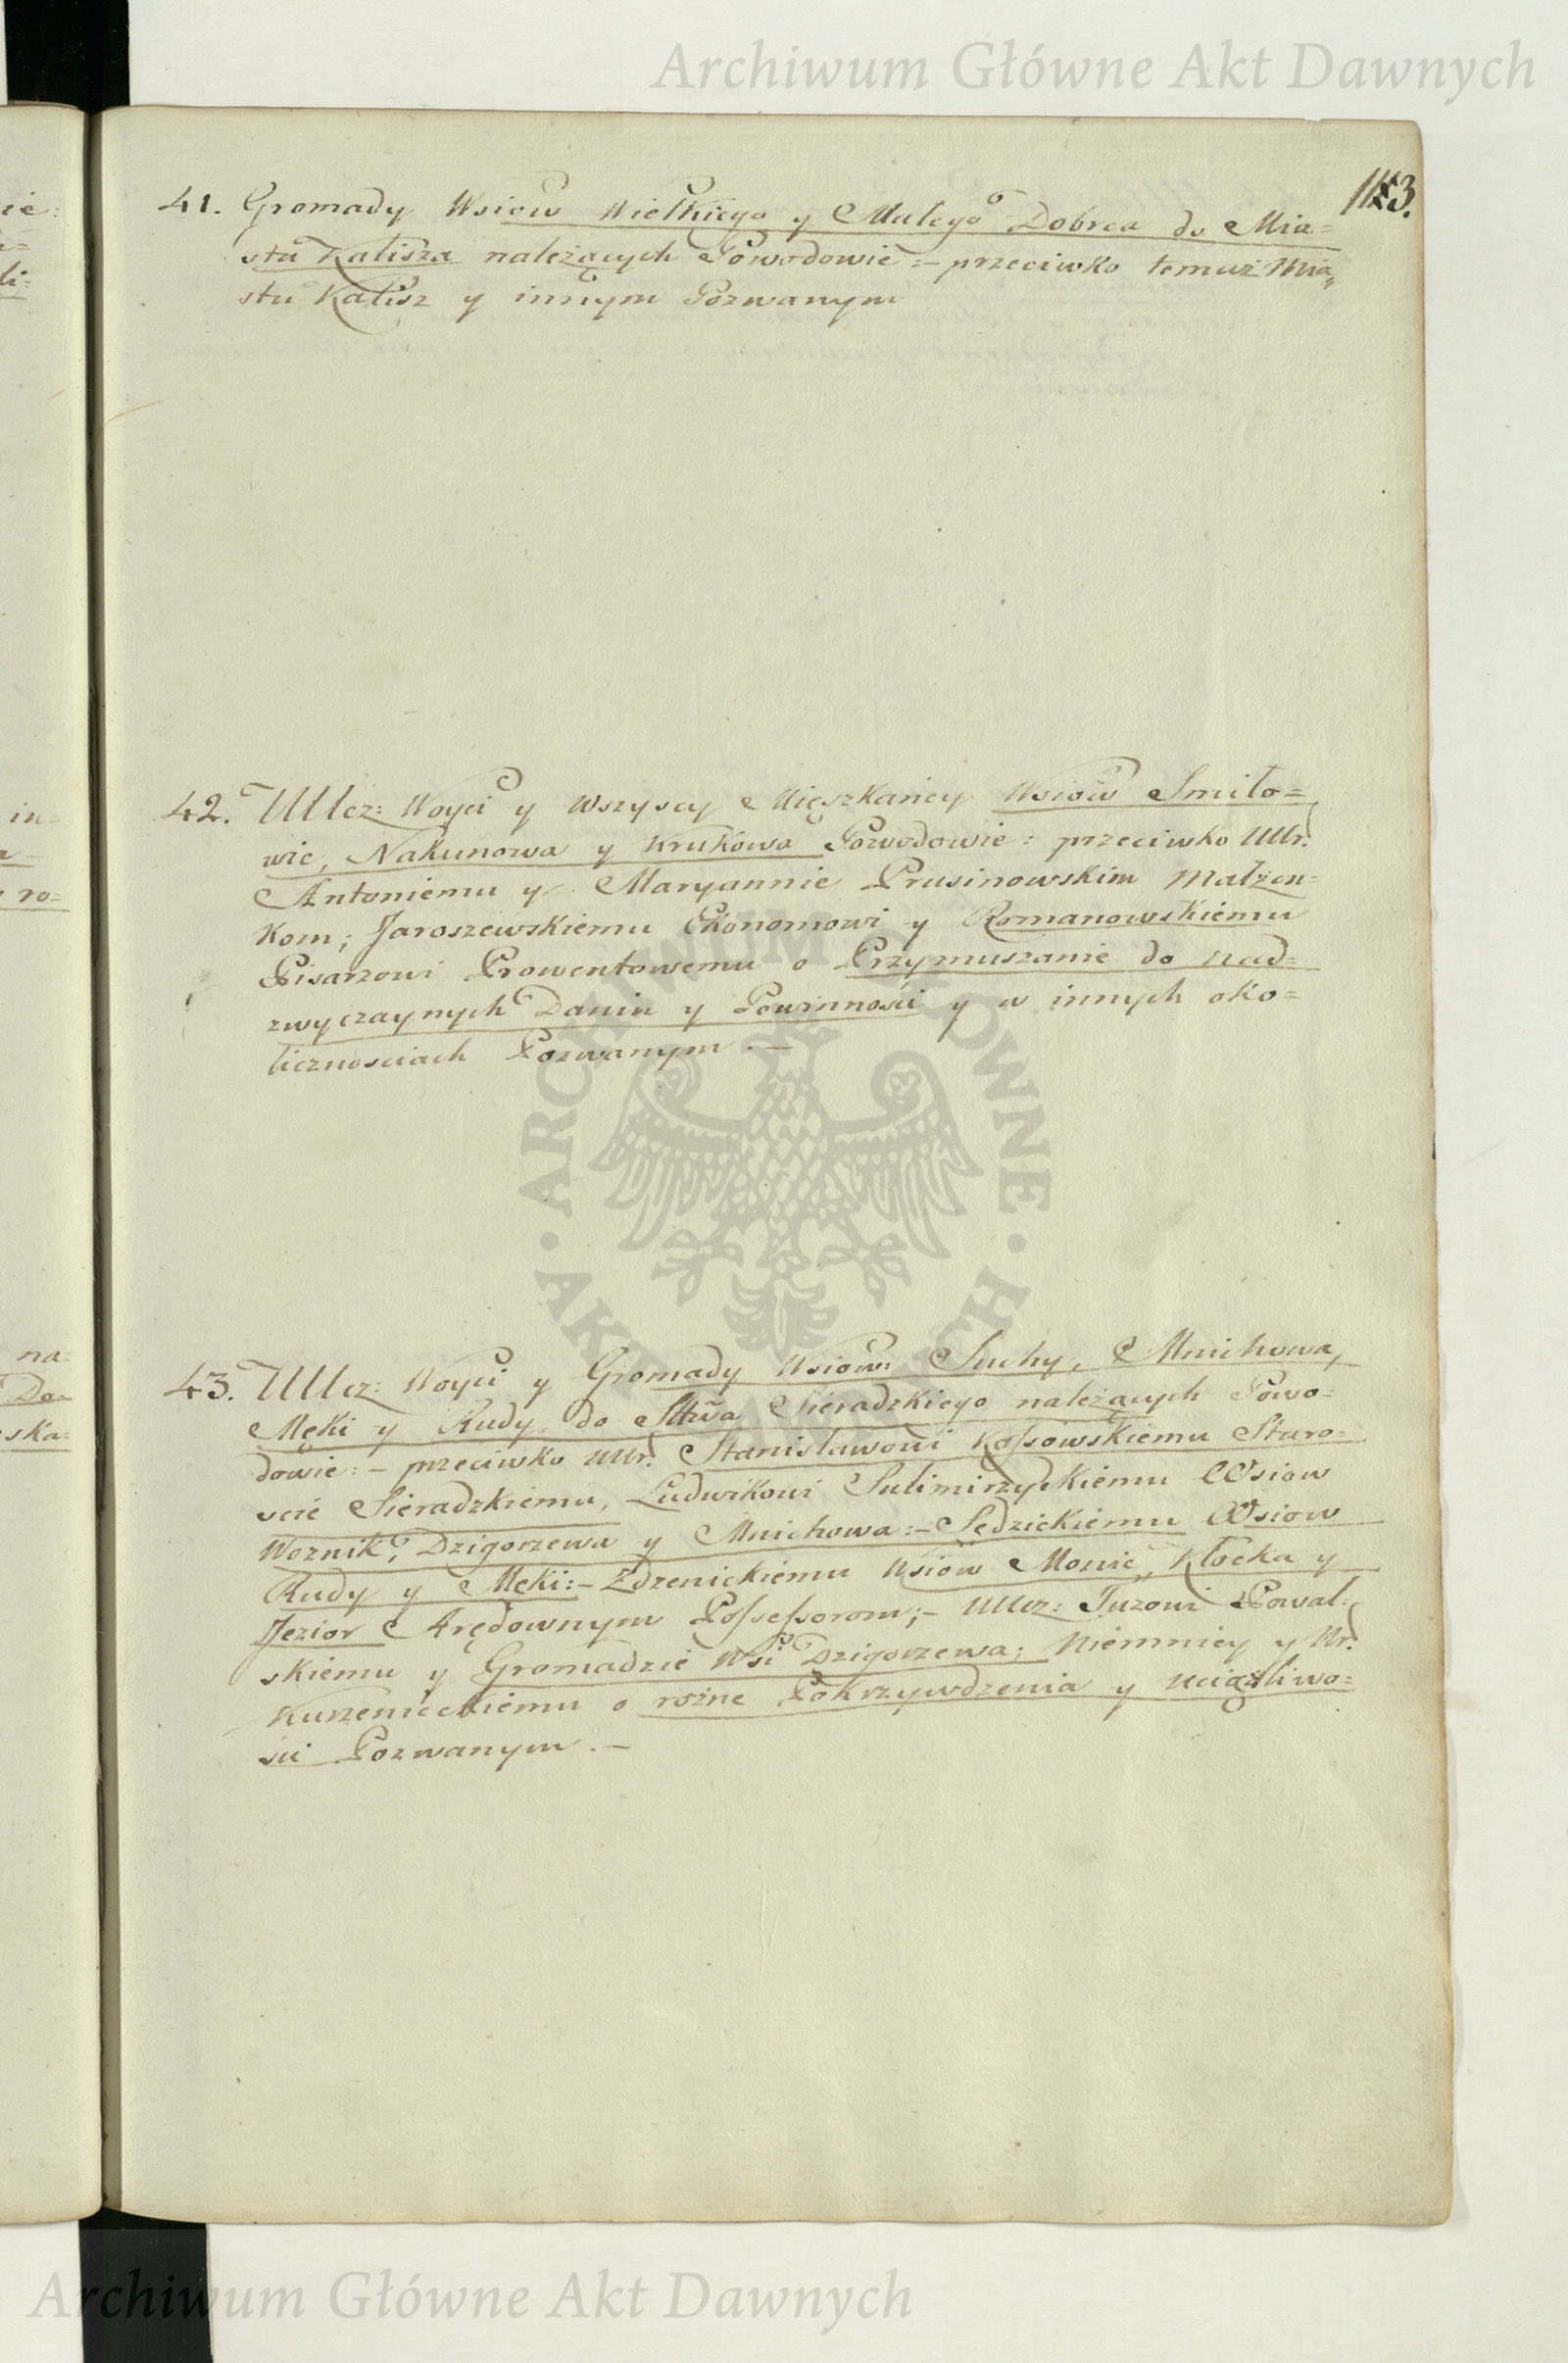 Archiwum Główne Akt Dawnych
41. Gromady Wsiow Wielkiego y Małego Dobrca do Mia=
sta Kalisza należących Powodowie :- przeciwko temuż Mia„
stu Kalisz y innym Pozwanym
42. UUcz: Woyci y Wszyscy Mięszkańcy Wsiow Smiło=
wic, Nakunowa y Krukowa Powodowie : przeciwko UUr.
Antoniemu y Maryannie Prusinowskim Małżon=
kom; Jaroszewskiemu Ekonomowi y Romanowskiemu
Pisarzowi Prowentowemu o Przymuszanie do nad=
zwyczaynych Danin y Powinnosci y w innych oko=
licznosciach Pozwanym . —
43. UUcz: Woyci y Gromady Wsiow: Suchy, Mnichowa,
Męki y Rudy do Sttwa Sieradzkiego należących Powo=
dowie :- przeciwko UUr. Stanisławowi Kossowskiemu Staro=
scie Sieradzkiemu, Ludwikowi Sulimirzyckiemu Wsiow
Woznik, Dzigorzewa y Mnichowa :- Sędzickiemu Wsiow
Rudy y Męki :- Zdzenickiemu Wsiow Monic, Kłocka y
Jezior Arędownym Possessorom ;- UUcz: Tuzowi Powal=
skiemu y Gromadzie Wsi Dzigorzewa ; Niemnicy y Ur.
Kurzenieckiemu o rożne Pokrzywdzenia y uciążliwo=
sci Pozwanym . —
ARCHIWUM GŁÓWNE AKT DAWNYCH
Archiwum Główne Akt Dawnych